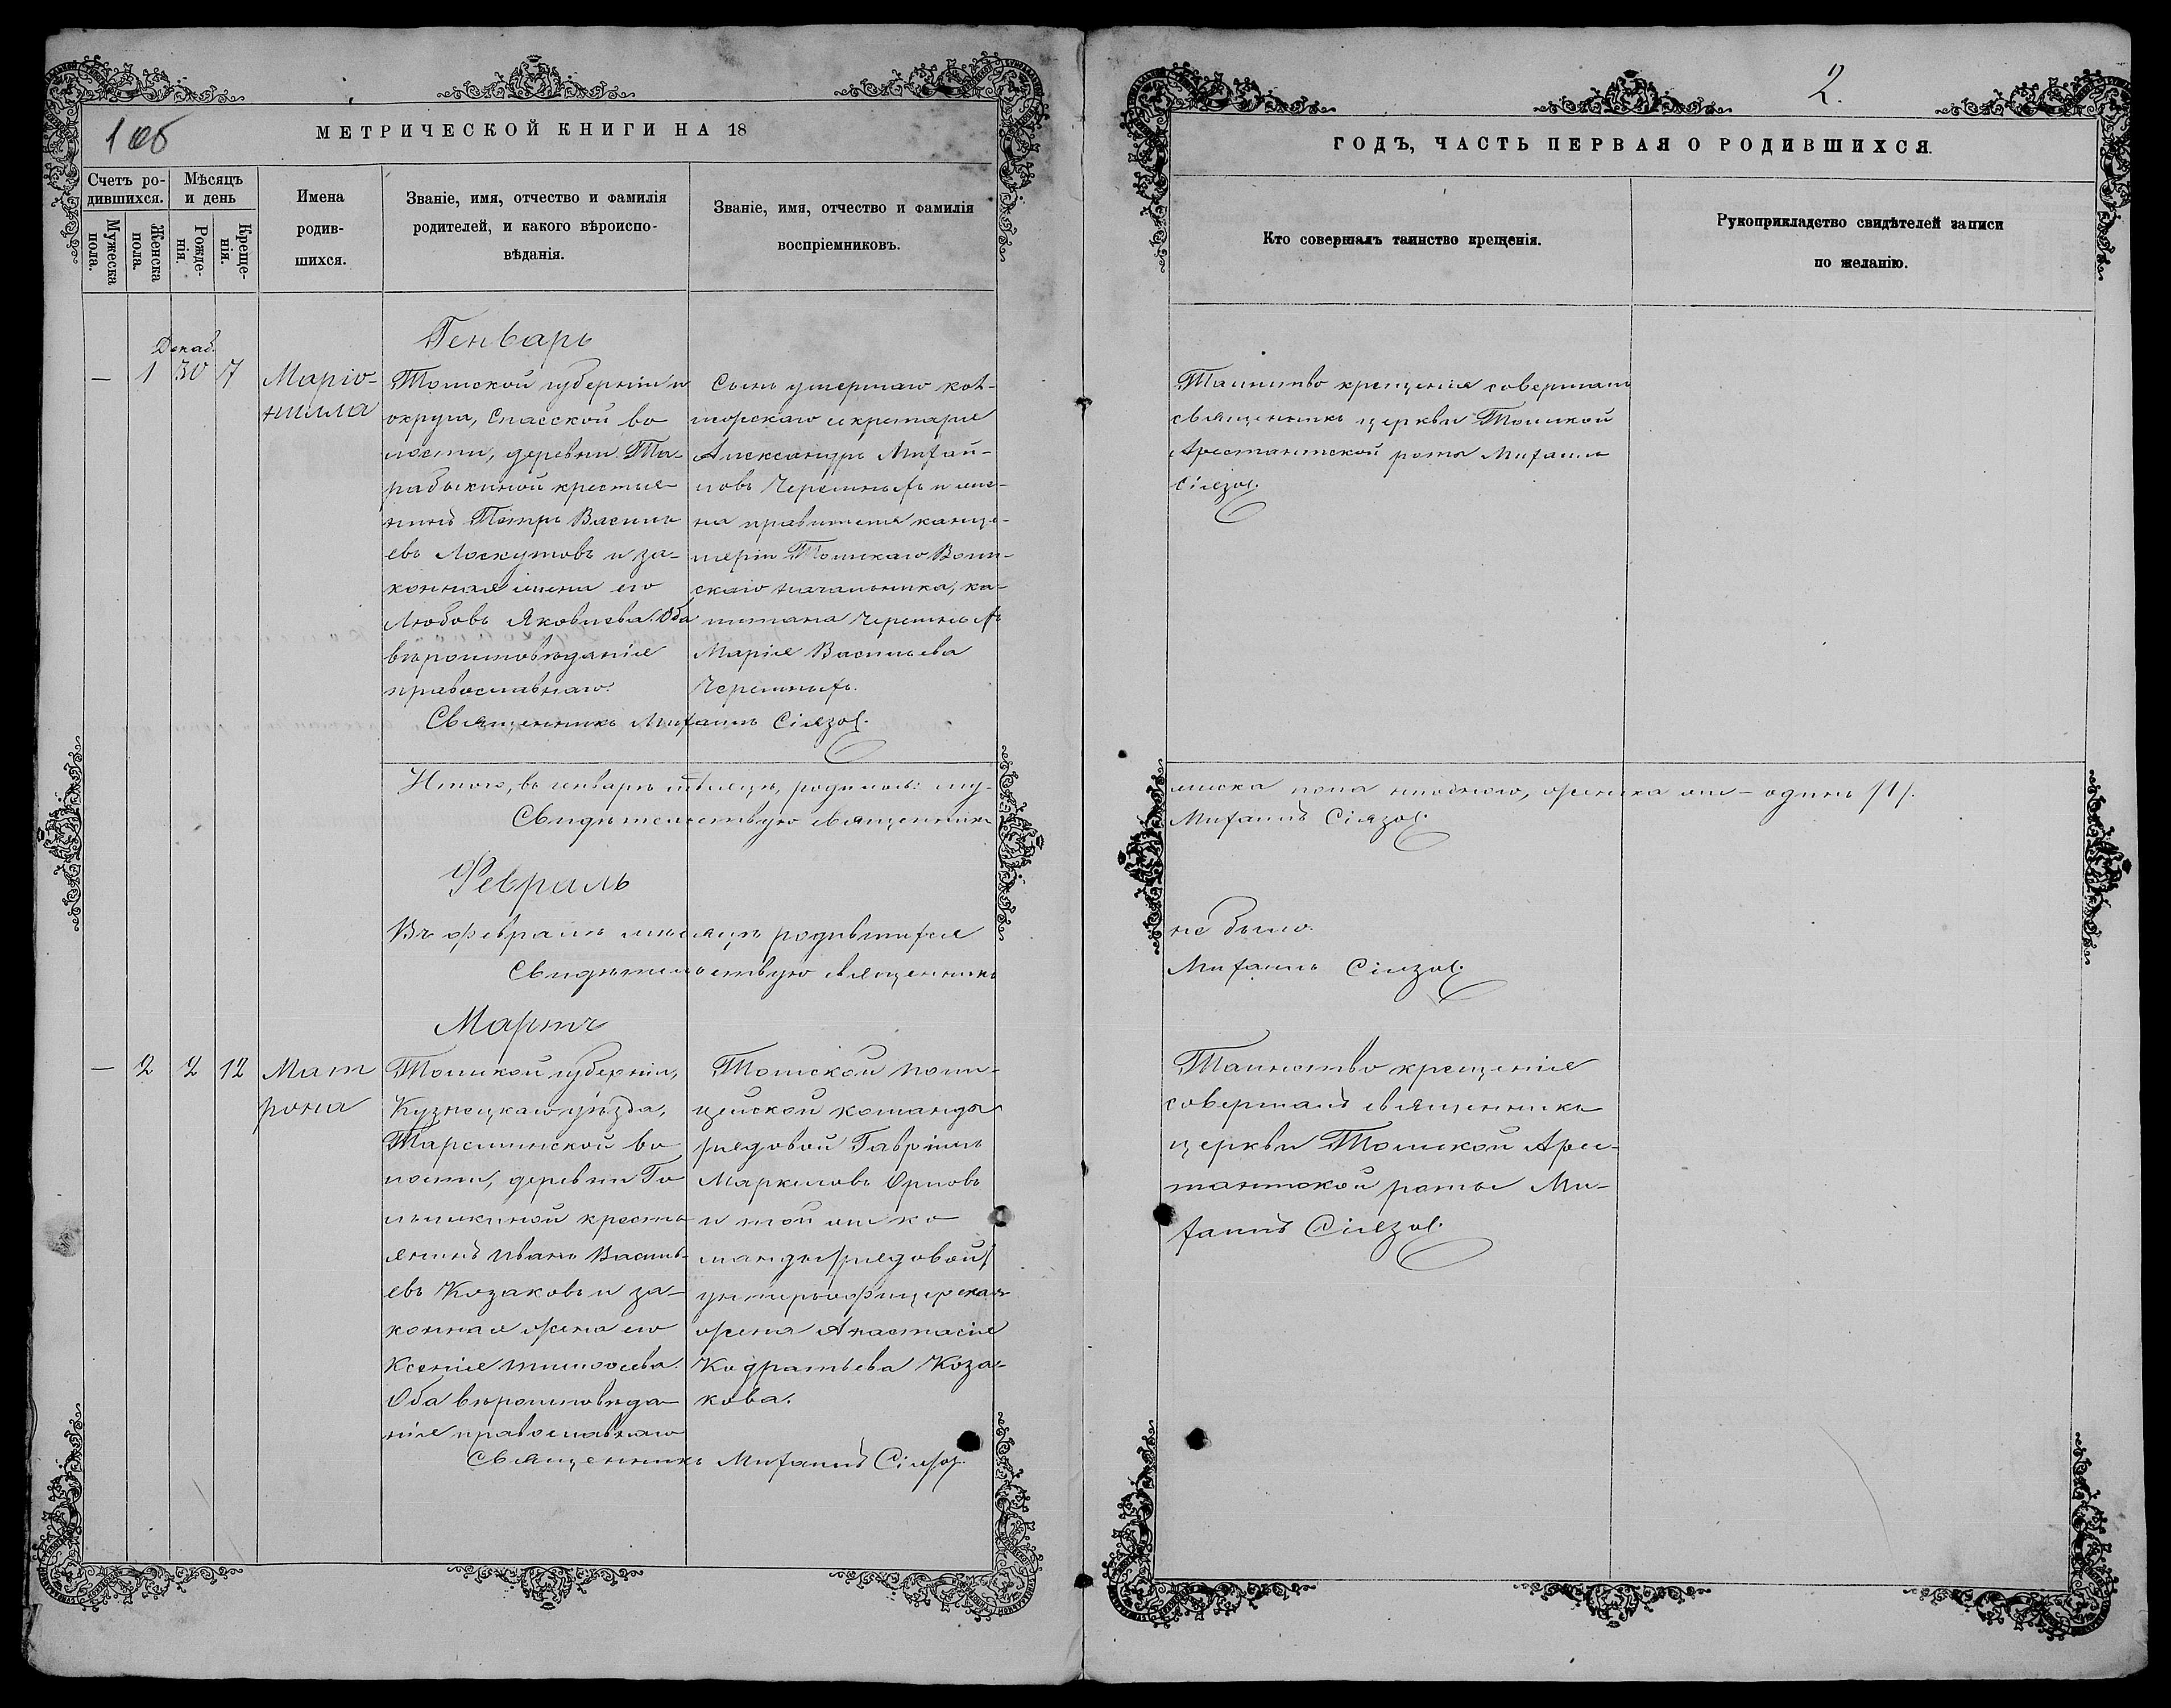 1 об
МЕТРИЧЕСКОЙ КНИГИ НА 18
Счетъ ро-
дившихся.
Мужеска
пола.
Женска
пола.
Мѣсяцъ
и день
Рожде-
нія.
Креще-
нія.
Имена
родив-
шихся.
Званіе, имя, отчество и фамилія
родителей, и какого вѣроиспо-
вѣданія.
Званіе, имя, отчество и фамилія
воспріемниковъ.
Генварь
Декаб.
— 1 30 7
Маріо-
нилла
Томской губерніи и
округа, Спасской во
лости, деревни Та-
рабыкиной крестья-
нинъ Петръ Василь
евъ Лоскутовъ и за-
конная жена его
Любовь Яковлева. Оба
вѣроисповѣданія
православнаго.
Сынъ умершаго кол-
лежскаго секретаря
Александръ Михай-
ловъ Черемныхъ и же-
на правителя канце-
ляріи Томскаго Воин-
скаго начальника, ка-
питана Черемныхъ
Марія Васильева
Черемныхъ.
Священникъ Михаилъ
Итого, въ генварѣ мѣсяцѣ, родилось: му-
Свидѣтельствую священникъ
Февраль
Въ февралѣ мѣсяцѣ родившихся
Свидѣтельствую священникъ
Мартъ
— 2 2 12
Мат
рона
Томской губерніи,
Кузнецкаго уѣзда,
Тарсминской во
лости, деревни
крестья
янинъ Иванъ Василь-
евъ Козаковъ и за-
конная жена его
Ксенія Тимофеева.
Оба вѣроисповѣда
нія православнаго
Томской поли-
цейской команды
рядовой Гавріилъ
Маркеловъ Орловъ
и той же ко
манды /рядовой/
унтеръ-офицерская
жена Анастасія
Кодратьева Коза-
кова.
Священникъ Михаилъ
2.
ГОДЪ, ЧАСТЬ ПЕРВАЯ О РОДИВШИХСЯ.
Кто совершалъ таинство крещенія.
Рукоприкладство свидѣтелей записи
по желанію.
Таинство крещенія совершалъ
священникъ церкви Томской
Арестантской роты Михаилъ
жеска пола ниодного, женска же — одинъ /1/.
Михаилъ
не было.
Михаилъ
Таинство крещенія
совершалъ священникъ
церкви Томской Арес-
тантской роты Ми-
хаилъ